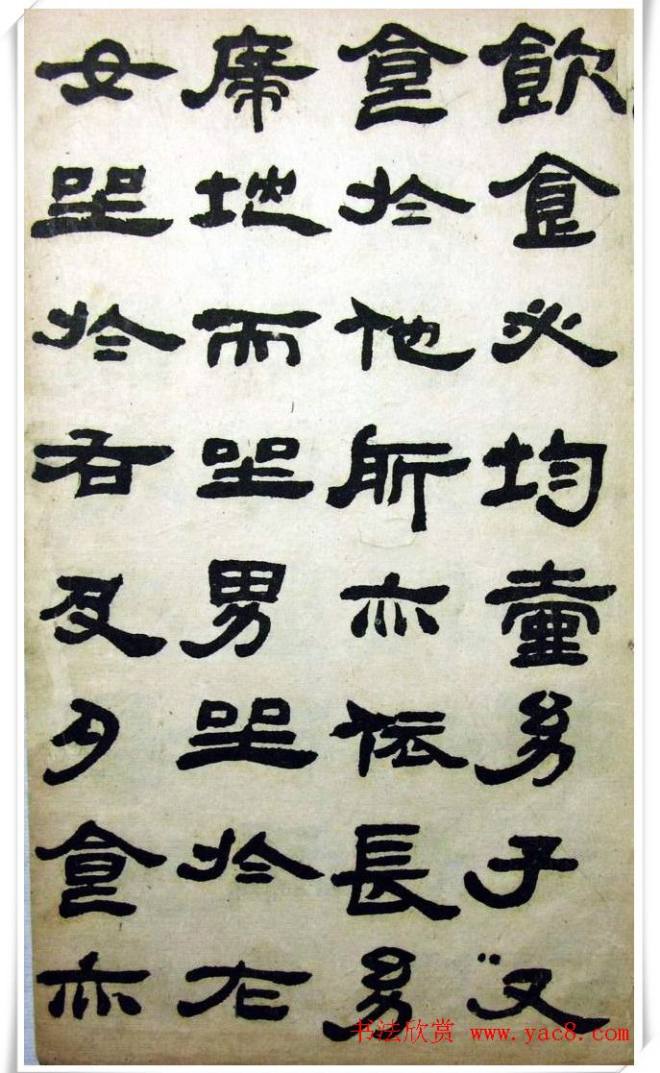 飲食必均童幼子又
食於他所亦依長幼
席地而坐男坐於左
女坐於右及夕食亦
书法欣赏 www.yac8.com